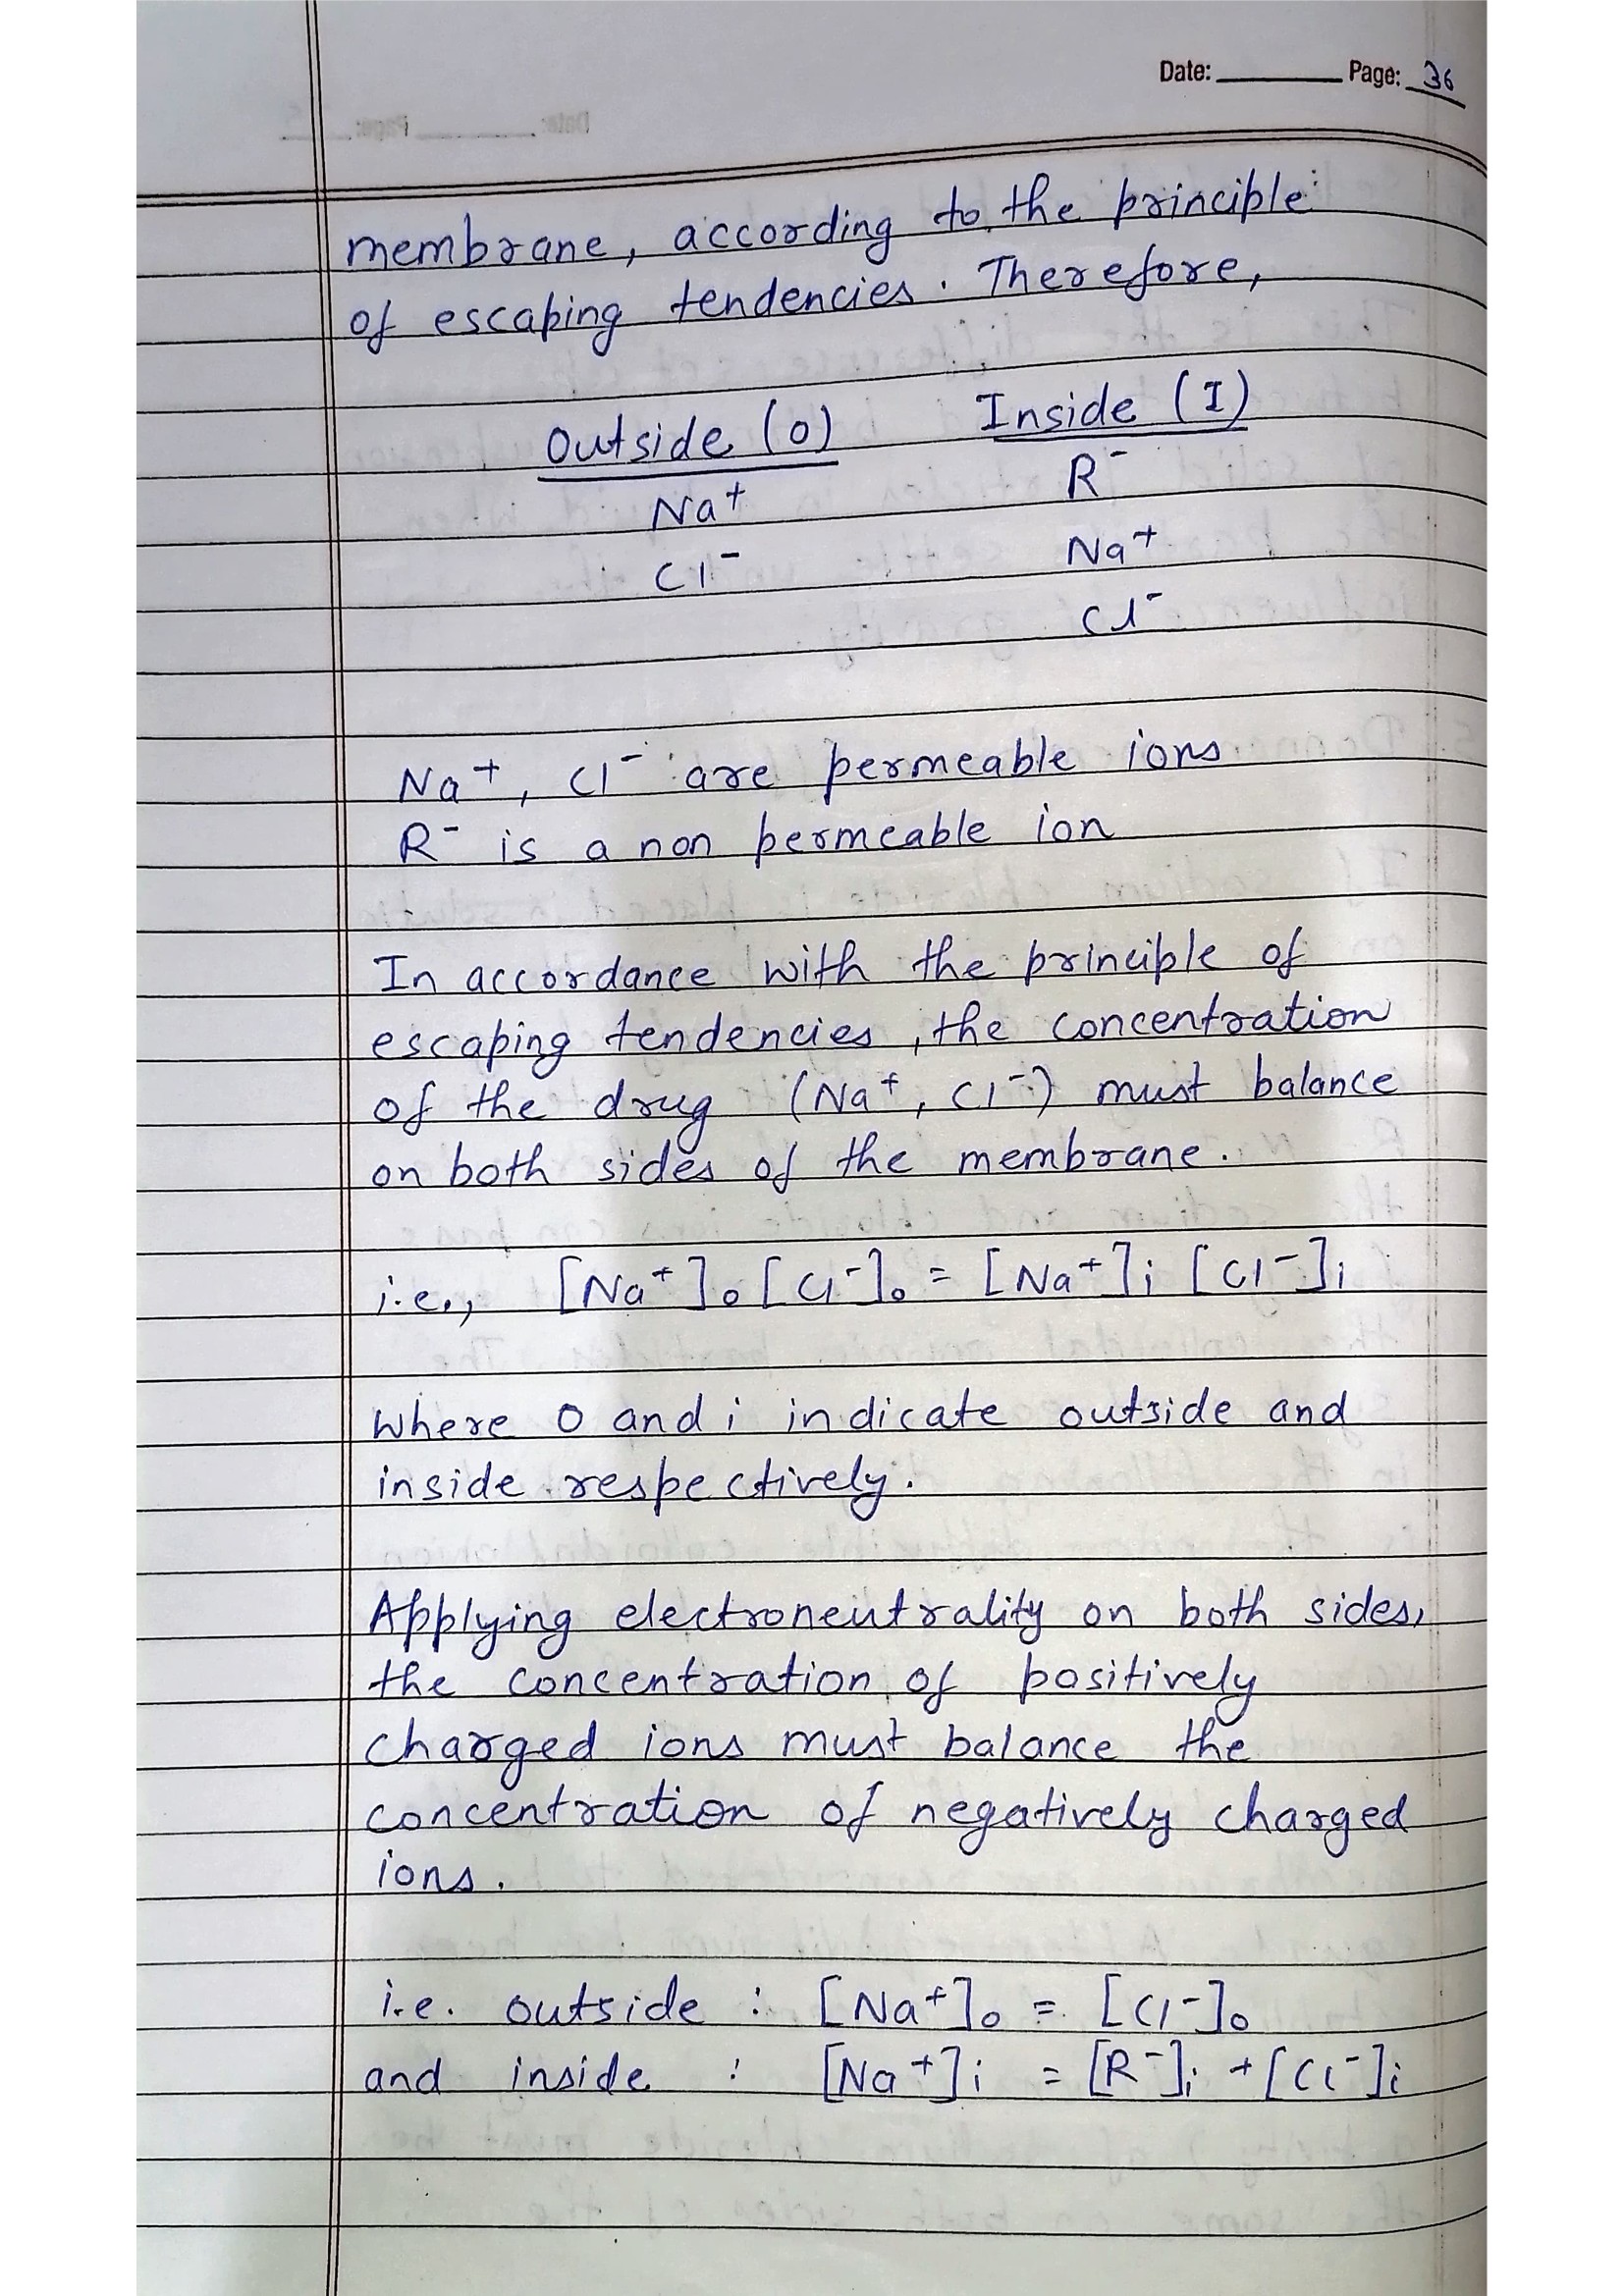 Date: ________ Page: 36
membrane, according to the principle
of escaping tendencies. Therefore,
Outside (O) Inside (I)
Na⁺ R⁻
Cl⁻ Na⁺
Cl⁻
Na⁺, Cl⁻ are permeable ions
R⁻ is a non permeable ion
In accordance with the principle of
escaping tendencies, the concentration
of the drug (Na⁺, Cl⁻) must balance
on both sides of the membrane.
i.e., [Na⁺]₀ [Cl⁻]₀ = [Na⁺]i [Cl⁻]i
where o and i indicate outside and
inside respectively.
Applying electroneutrality on both sides,
the concentration of positively
charged ions must balance the
concentration of negatively charged
ions.
i.e. outside : [Na⁺]₀ = [Cl⁻]₀
and inside : [Na⁺]i = [R⁻]i + [Cl⁻]i